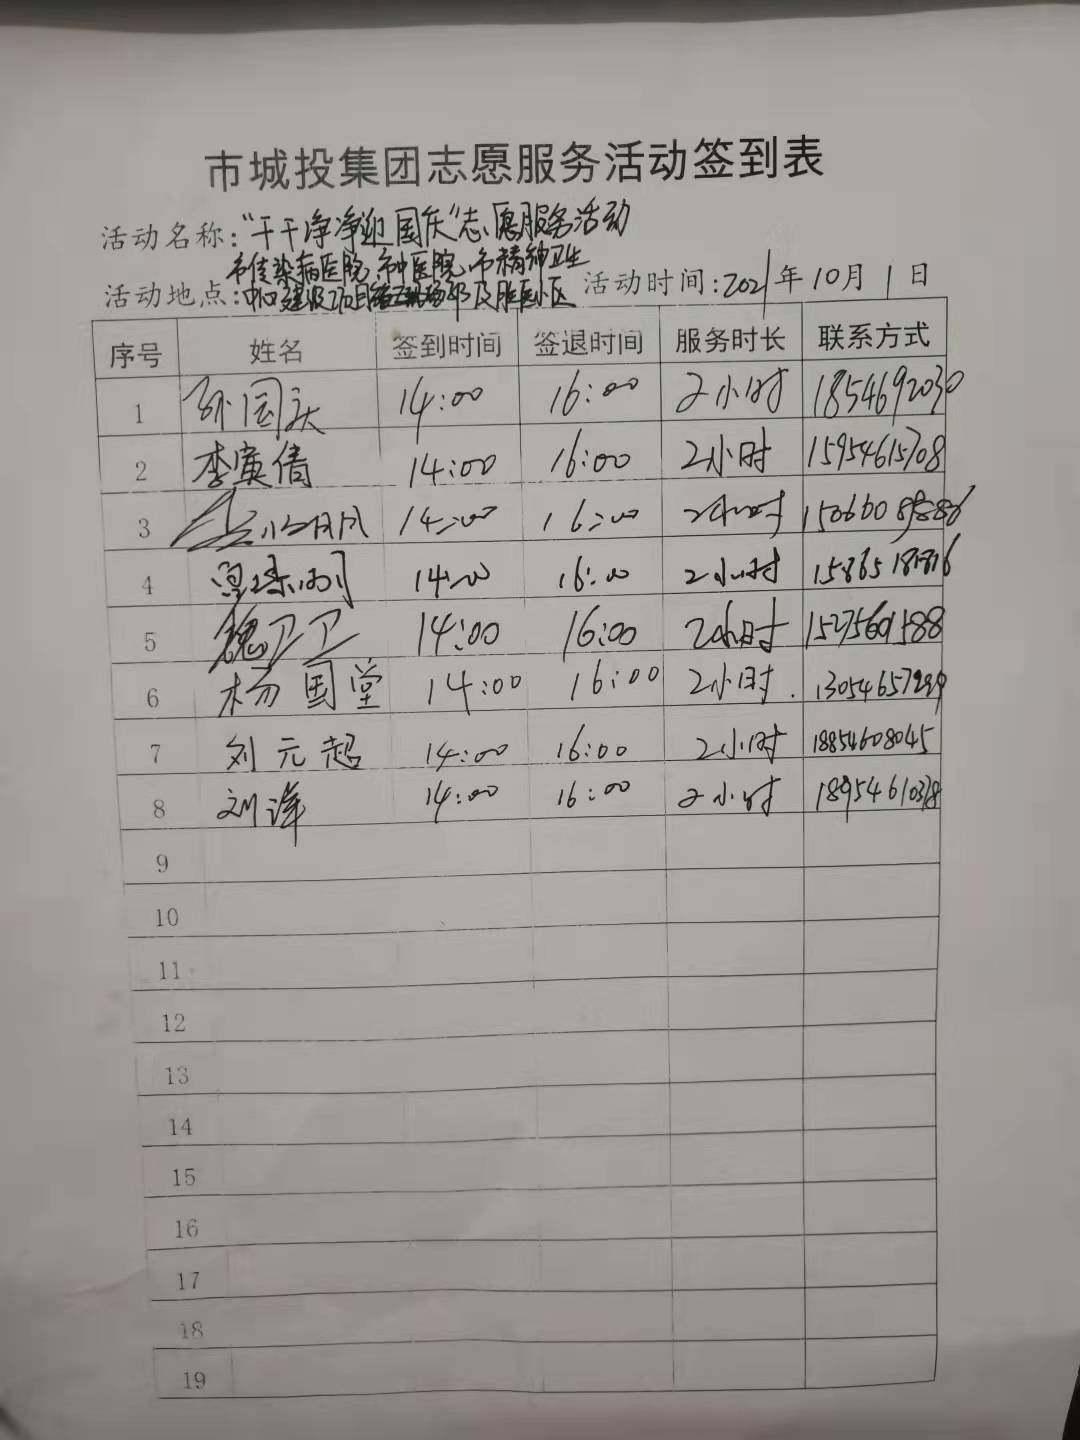 市城投集团志愿服务活动签到表
活动名称："干干净净迎国庆"志愿服务活动
市传染病医院、市中医院、市精神卫生
活动地点：中心建设项目 及 小区 活动时间：2021年10月1日
序号 姓名 签到时间 签退时间 服务时长 联系方式
1 孙国庆 14:00 16:00 2小时 1854692030
2 李寅倩 14:00 16:00 2小时 15954615708
3 14:00 16:00 2小时
4 14:00 16:00 2小时
5 魏卫卫 14:00 16:00 2小时 15275601588
6 杨国堂 14:00 16:00 2小时
7 刘元超 14:00 16:00 2小时 18854608045
8 刘洋 14:00 16:00 2小时 18954610378
9
10
11
12
13
14
15
16
17
18
19